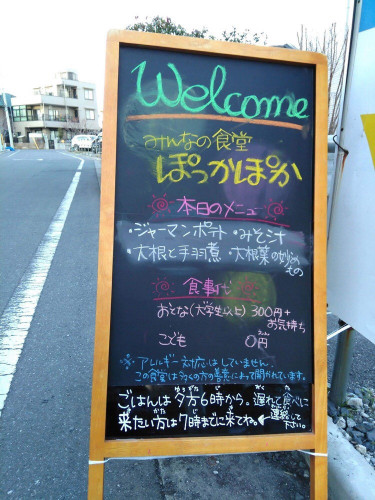 Welcome
みんなの食堂
ぽっかぽか
本日のメニュー
・ジャーマンポテト ・みそ汁
・大根と手羽煮 ・大根葉の炒めもの
食事代
おとな(大学生以上) 300円+
お気持ち
こども 0円
※アレルギー対応はしていません
この食堂は多くの方の善意によって開かれています。
ごはんは夕方6時から。遅れて食べに
来たい方は7時までに来てね。←連絡して下さい。